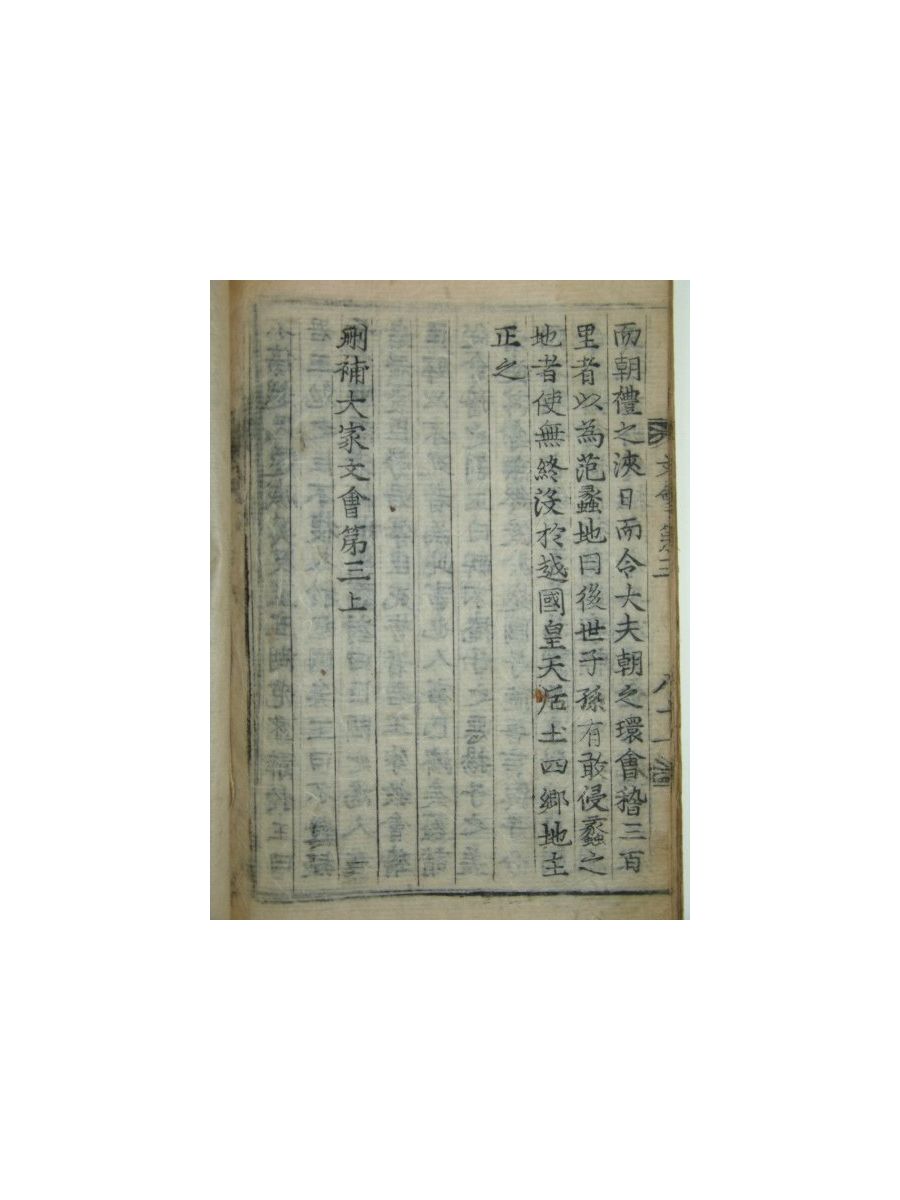 而朝禮之浹日而令大夫朝之環會稽三百
里者以為范蠡地曰後世子孫有敢侵蠡之
地者使無終没於越國皇天后土四鄉地主
正之
刪補大家文會第三上